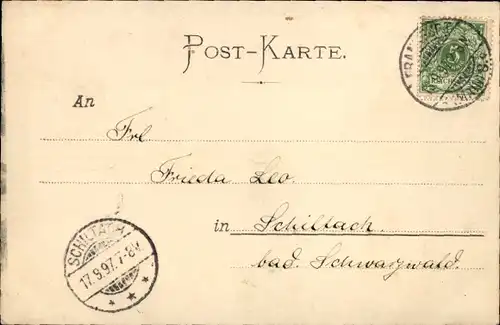 POST-KARTE.
An
Frl
Frieda Leo.
in Schiltach.
bad. Schwarzwald.
SCHILTACH
17.9.97.7-8V.